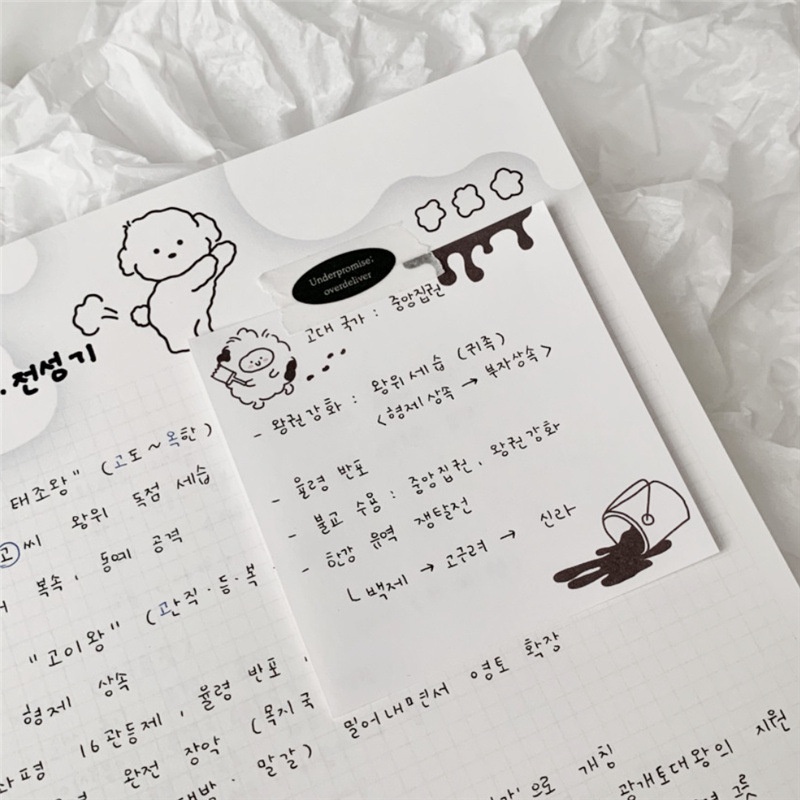 Underpromise;
overdeliver
고대 국가 : 중앙집권
- 왕권강화 : 왕위세습 (귀족)
<형제상속 → 부자상속>
- 율령 반포
- 불교 수용 : 중앙집권, 왕권강화
- 한강 유역 쟁탈전
ㄴ백제 → 고구려 → 신라
.전성기
태조왕" (고도~옥한)
고씨 왕위 독점 세습
복속, 동예 공격
"고이왕" (관직·등·복·
형제 상속
평 16관등제, 율령 반포,
완전 장악 (목지국
대방·말갈) 밀어내면서 영토 확장
'으로 개칭
광개토대왕의 지원